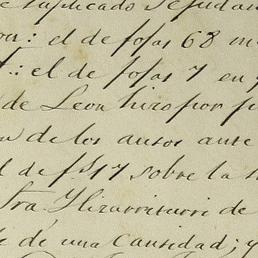 suplicado se
el de fojas 68
el de fojas 7 en
de Leon hizo por
de los autos ante
de fs 17 sobre la
Ylizarriturri de
de una Cantidad; y